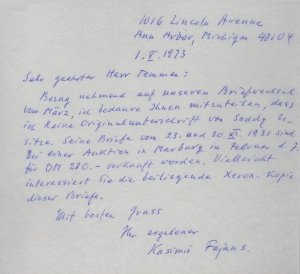 1016 Lincoln Avenue
Ann Arbor, Michigan 48104
1. V. 1973
Sehr geehrter Herr Temmen:
Bezug nehmend auf unseren Briefwechsel
vom März, ich bedaure Ihnen mitzuteilen, dass
ich keine Originalunterschrift von Soddy be-
sitze. Seine Briefe vom 23. und 30. XI. 1931 sind
bei einer Auktion in Marburg im Februar d. J.
für DM 280.- verkauft worden. Vielleicht
interessiert Sie die beiliegende Xerox-Kopie
dieser Briefe.
Mit bestem Gruss
Ihr ergebener
Kasimir Fajans.